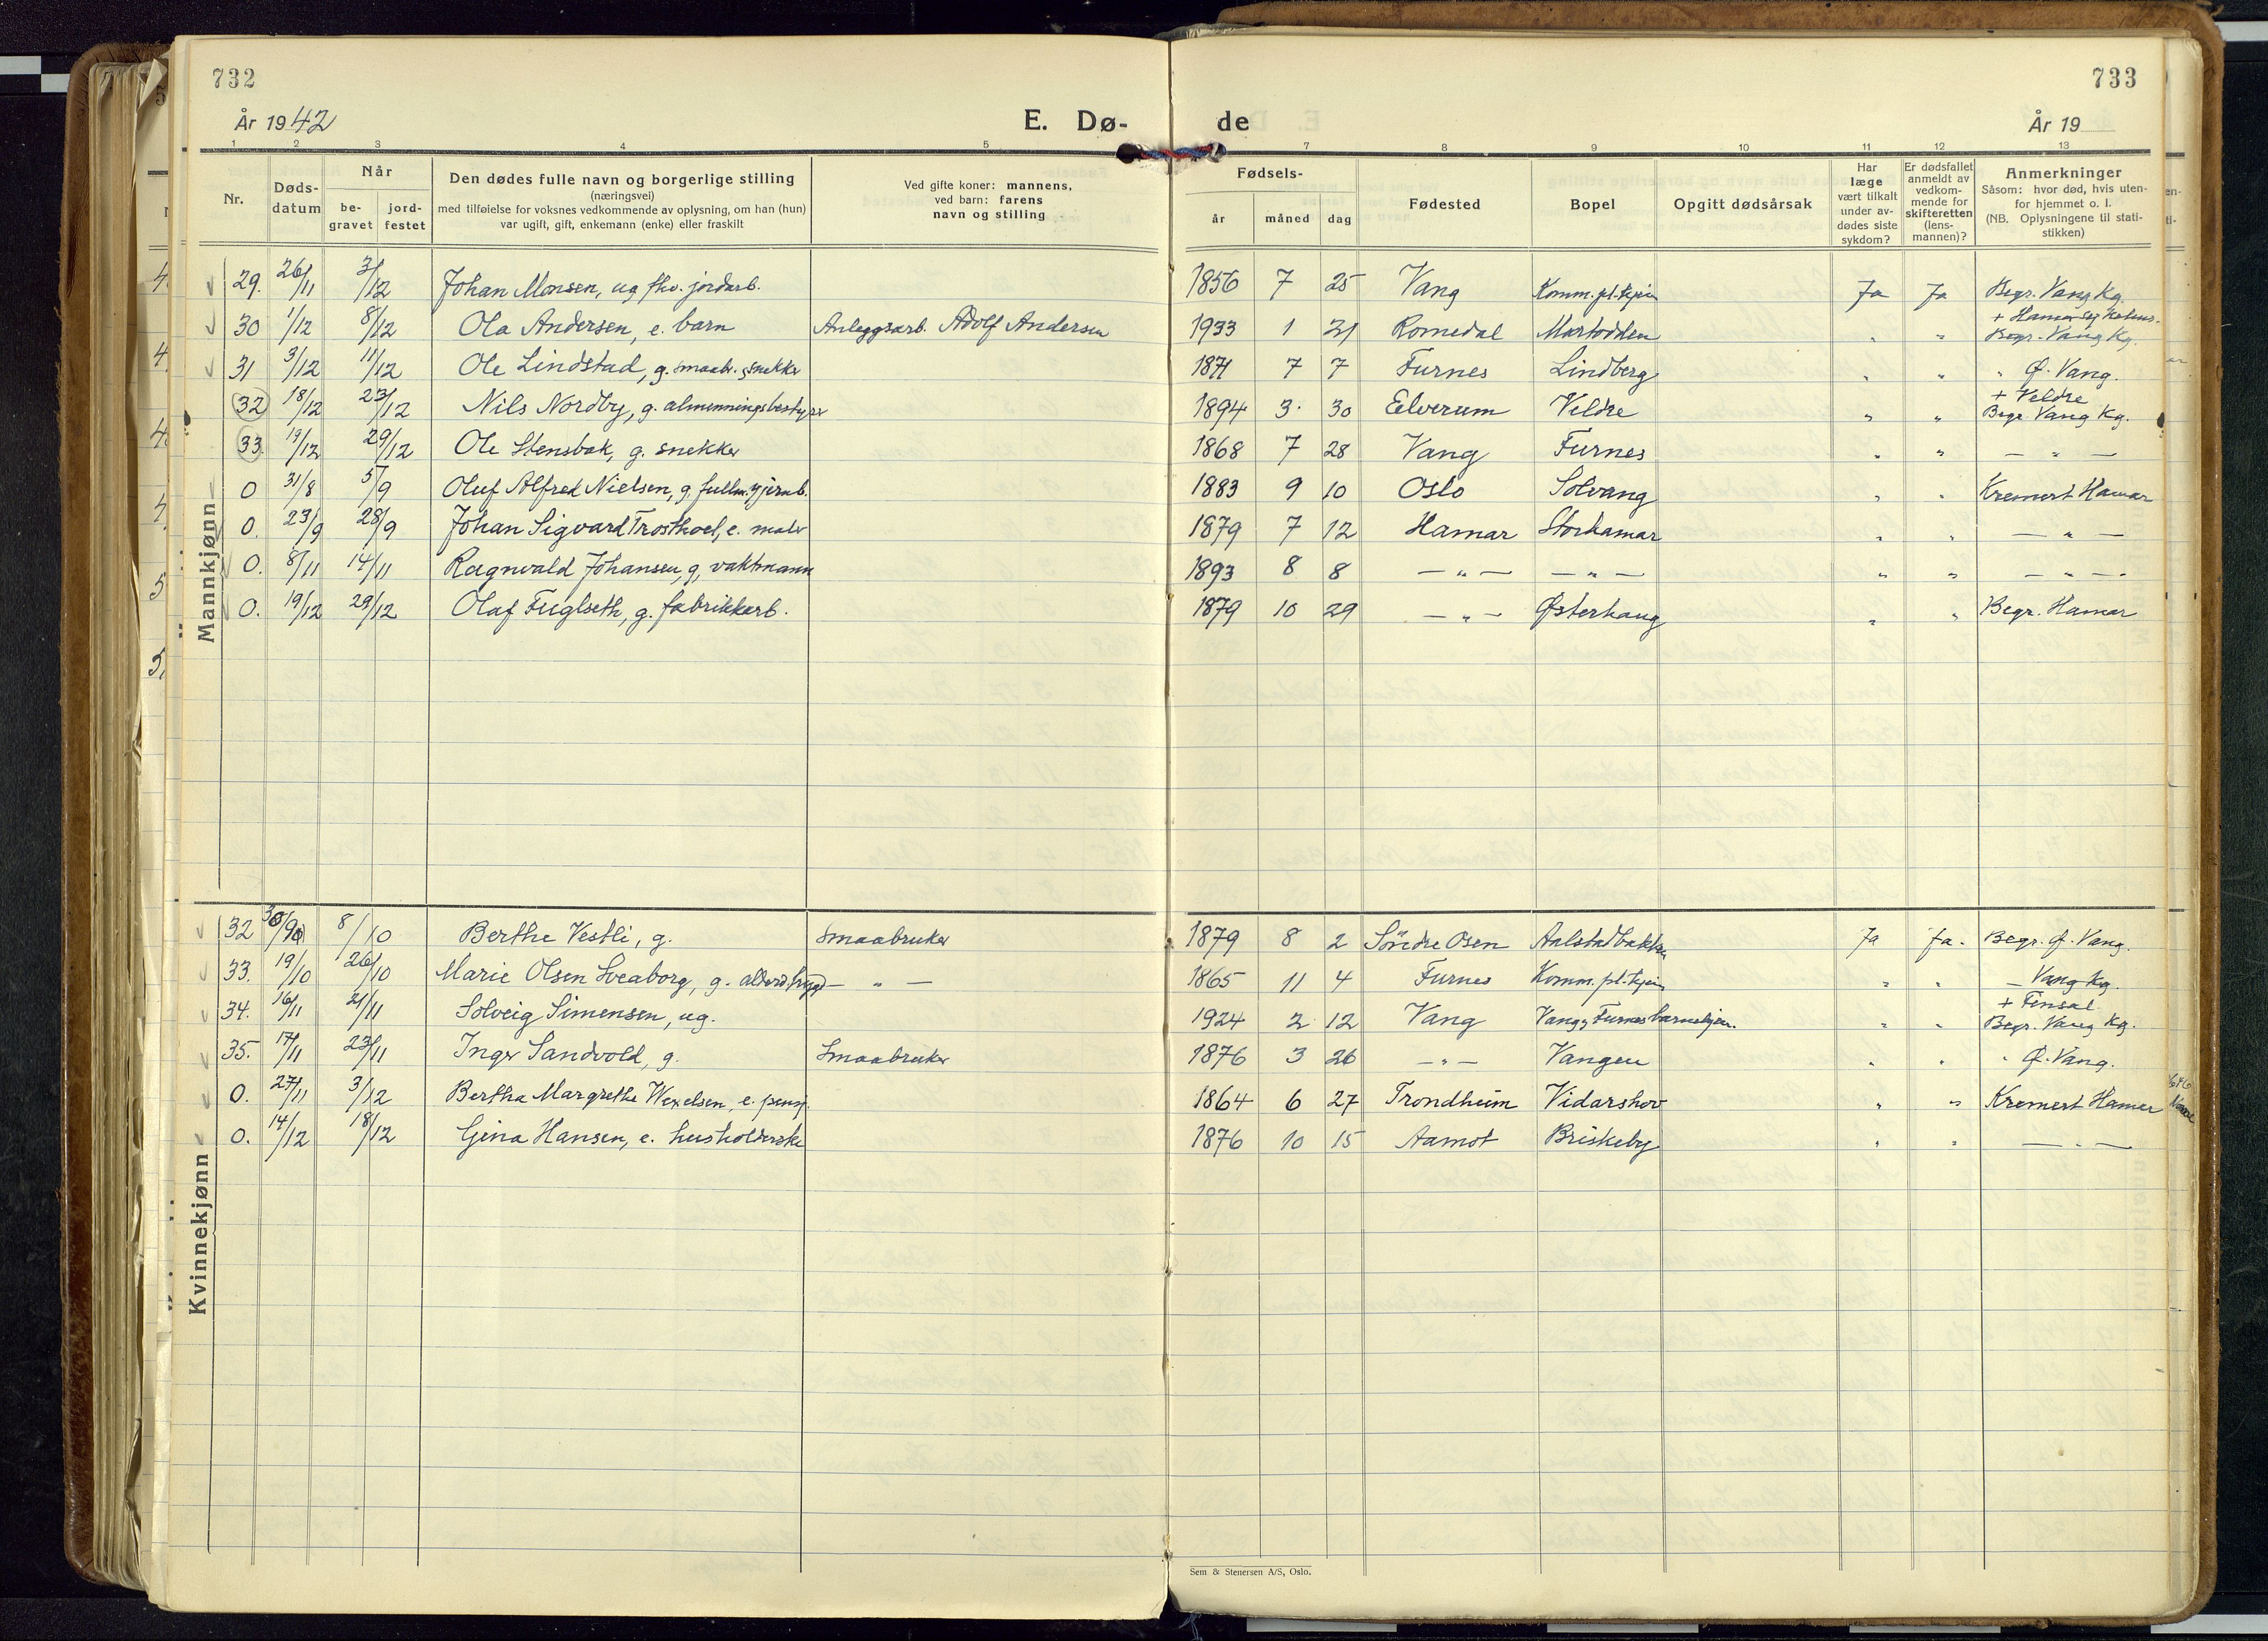 732
733
År 1942
E. Dø-
de
År 19
1 2 3 4 5 7 8 9 10 11 12 13
Nr.
Døds-
datum
Når
be-
gravet
jord-
festet
Den dødes fulle navn og borgerlige stilling
(næringsvei)
med tilføielse for voksnes vedkommende av oplysning, om han (hun)
var ugift, gift, enkemann (enke) eller fraskilt
Ved gifte koner: mannens,
ved barn: farens
navn og stilling
Fødsels-
år
måned
dag
Fødested
Bopel
Opgitt dødsårsak
Har
læge
vært tilkalt
under av-
dødes siste
sykdom?
Er dødsfallet
anmeldt av
vedkom-
mende for
skifteretten
(lens-
mannen)?
Anmerkninger
Såsom: hvor død, hvis uten-
for hjemmet o. l.
(NB. Oplysningene til stati-
stikken)
Mannkjønn
29. 26/11 3/12 Johan Monsen, ug fhv. jordarb. 1856 7 25 Vang Komm. pl.hjem Ja Ja Begr. Vang Kg.
+ Hamar
30 1/12 8/12 Ola Andersen, e. barn Anleggsarb. Adolf Andersen 1933 1 21 Romedal Martodden " " Begr. Vang Kg.
31 3/12 11/12 Ole Lindstad, g. smaabr. & snekker 1871 7 7 Furnes Lindberg " " " Ø. Vang.
+ Veldre
32 18/12 23/12 Nils Nordby, g. almenningsbestyrer 1894 3. 30 Elverum Veldre " " Begr Vang Kg.
33. 19/12 29/12 Ole Stensbak, g. snekker 1868 7 28 Vang Furnes " " — " —
0 31/8 5/9 Oluf Alfred Nielsen, g. fullm. v jernb. 1883 9 10 Oslo Solvang " " Kremert Hamar
0. 23/9 28/9 Johan Sigvard Trosthoel, e. maler 1879 7 12 Hamar Storhamar " " — " —
0. 8/11 14/11 Ragnvald Johansen, g, vaktmann 1893 8 8 — " — — " — " " — " —
0. 19/12 29/12 Olaf Fuglseth, g. fabrikkarb. 1879 10 29 — " — Østerhaug " " Begr. Hamar
Kvinnekjønn
32 30/9 8/10 Berthe Vestli, g. Smaabruker 1879 8 2 Söndre Osen Aalstadbakken Ja Ja. Begr. Ø. Vang.
33. 19/10 26/10 Marie Olsen Sveaborg, g. alderstrygd — " — 1865 11 4 Furnes Komm. pl.hjem " " — Vang Kg.
+ Finsal
34. 16/11 21/11 Solveig Simensen, ug. 1924 2 12 Vang Vang & Furnes barnehjem. " " Begr. Vang Kg.
35. 17/11 23/11 Inger Sandvold, g. Smaabruker 1876 3 26 — " — Vangen " " " Ø. Vang.
0. 27/11 3/12 Bertha Margrethe Wexelsen, e. pensj. 1864 6 27 Trondheim Vidarshov " " Kremert Hamar
0. 14/12 18/12 Gina Hansen, e. husholderske 1876 10 15 Aamot Briskeby " " — " —
Sem & Stenersen A/S, Oslo.